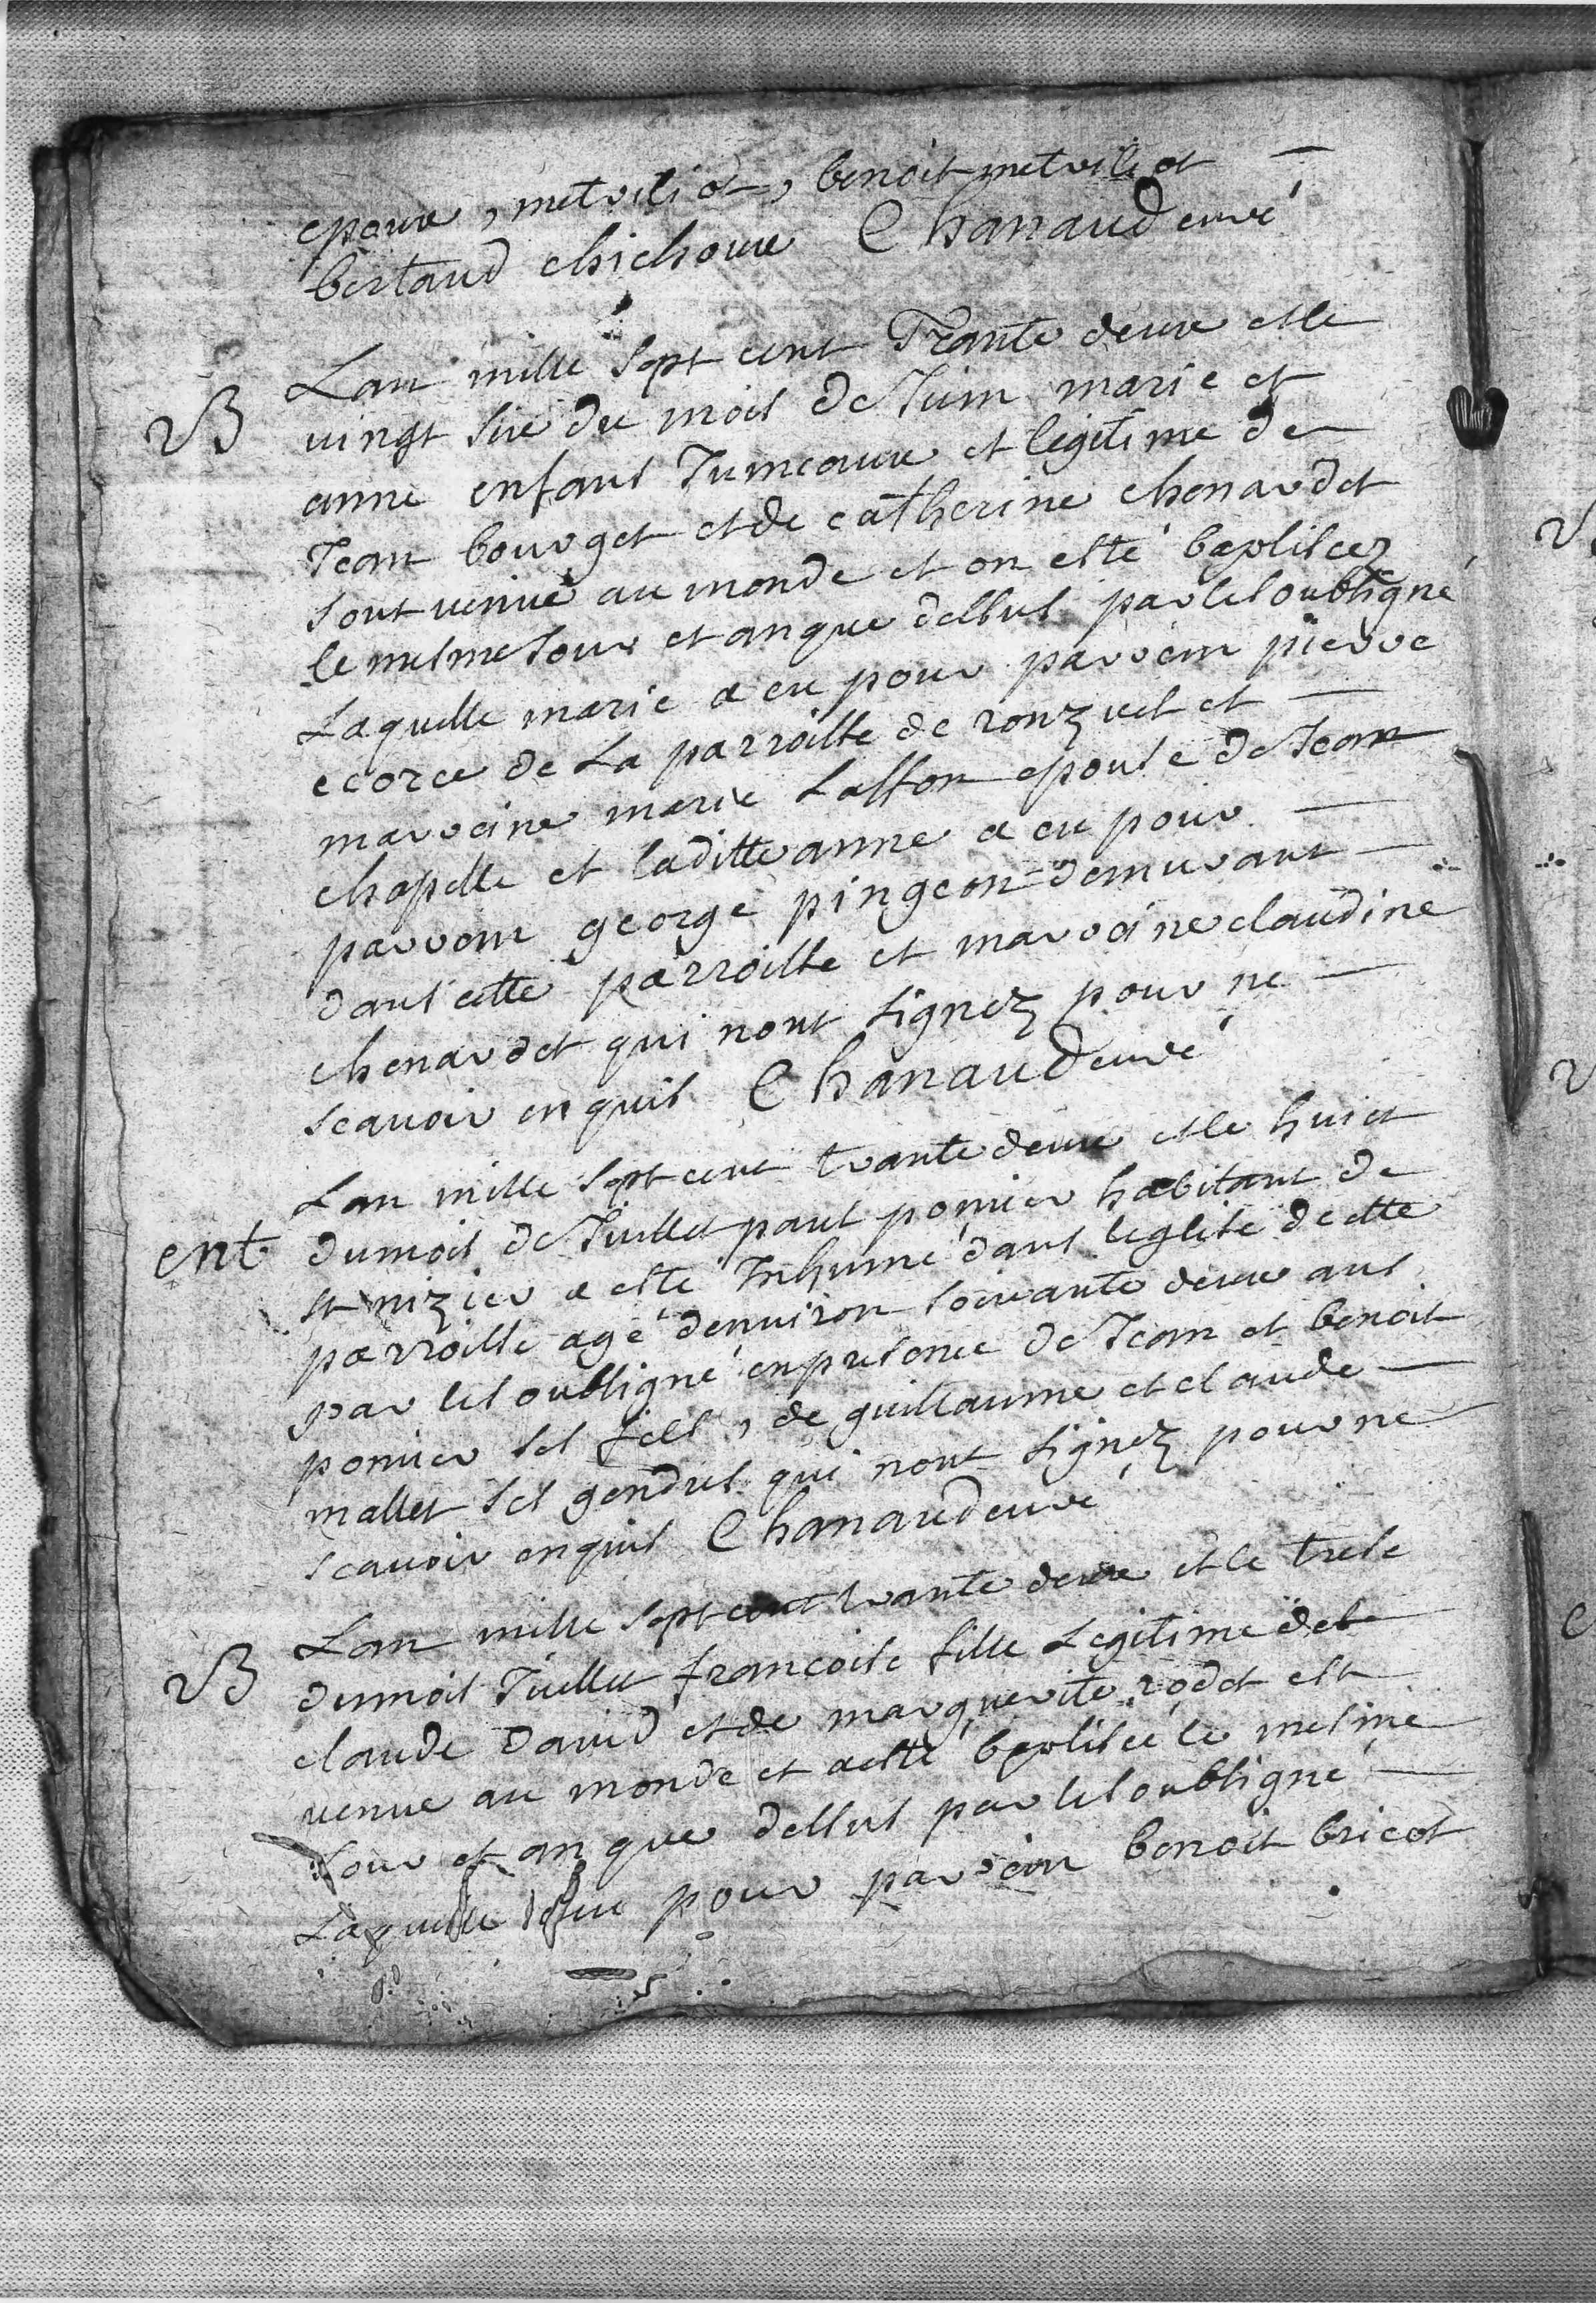 epoux, metrili ot, benoit metriliot
bertaud chichoux Chanaud curé
Lan mille sept cent Trante deux et le
B vingt six du mois de Juin marie et
anne enfans Jumeaux et legitime de
Jean bourget et de catherine chenardet
sont venue au monde et on esté baptisez
le mesme Jour et an que dessus par le soubsigné
Laquelle marie a eu pour parrein pierre
ecorce de La parroisse de ronzuel et
marreine marie Lasson epouse de Jean
chapelle et laditte anne a eu pour
parrein george pingeon demurant
dans cette parroisse et marreine claudine
chenardet qui nont signez pour ne
scavoir enquis Chanaud curé
Lan mille sept cent trante deux et le huict
ent du mois de Juillet paul pomier habitant de
st nizier a esté Inhumé dans leglise de cette
parroisse agé denviron soixante deux ans
par le soubsigné en presence de Jean et benoit
pomier ses fils, de guillaume et claude
mallet ses gendres qui nont signez pour ne
scavoir enquis Chanaud curé
Lan mille sept cent trante deux et le trese
B du mois Juillet francoise fille Legitime de
claude David et de marguerite rodet est
venue au monde et a esté baptisée le mesme
Jour et an que dessus par le soubsigné
Laquelle a eu pour parrein benoit bricot